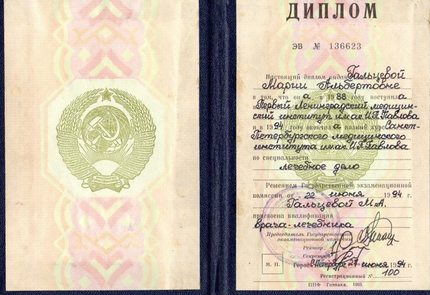 ДИПЛОМ
ЭВ № 136623
Настоящий диплом выдан Гальцевой
Марии Альбертовне
в том, что она в 1988 году поступила
в Первый Ленинградский медицин-
ский институт имени И.П.Павлова
и в 1994 году окончила полный курс Санкт-
Петербургского медицинского
института имени И.П.Павлова
по специальности
лечебное дело
Решением Государственной экзаменационной
комиссии от 22 июня 1994 г.
Гальцевой М.А.
присвоена квалификация
врача-лечебника
Председатель Государственной
экзаменационной комиссии
Ректор
Секретарь
М. П. Город 27 июня 1994
Регистрационный № 100